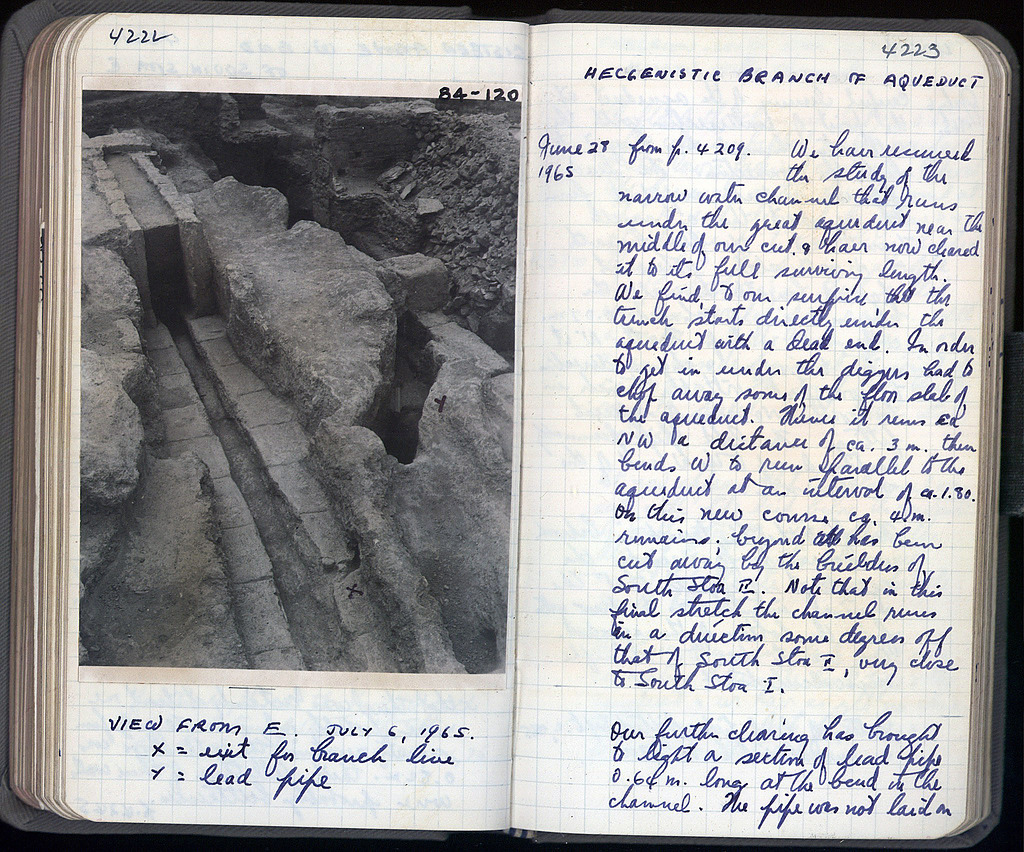 4222
84-120
VIEW FROM E. JULY 6, 1965.
x = exit for branch line
Y = lead pipe
4223
HELLENISTIC BRANCH OF AQUEDUCT
June 28 from p. 4209. We have resumed
1965 the study of the
narrow water channel that runs
under the great aqueduct near the
middle of our cut, & have now cleared
it to its full surviving length.
We find, to our surprise that the
trench starts directly under the
aqueduct with a dead end. In order
to get in under the diggers had to
chip away some of the floor slab of
the aqueduct. Thence it runs
NW a distance of ca. 3 m. then
bends W to run parallel to the
aqueduct at an interval of ca. 1.80.
On this new course ca. 4 m.
remains; beyond has been
cut away by the builders of
South Stoa II. Note that in this
final stretch the channel runs
in a direction some degrees off
that of South Stoa II, very close
to South Stoa I.
Our further clearing has brought
to light a section of lead pipe
0.64 m. long at the bend in the
channel. The pipe was not laid on